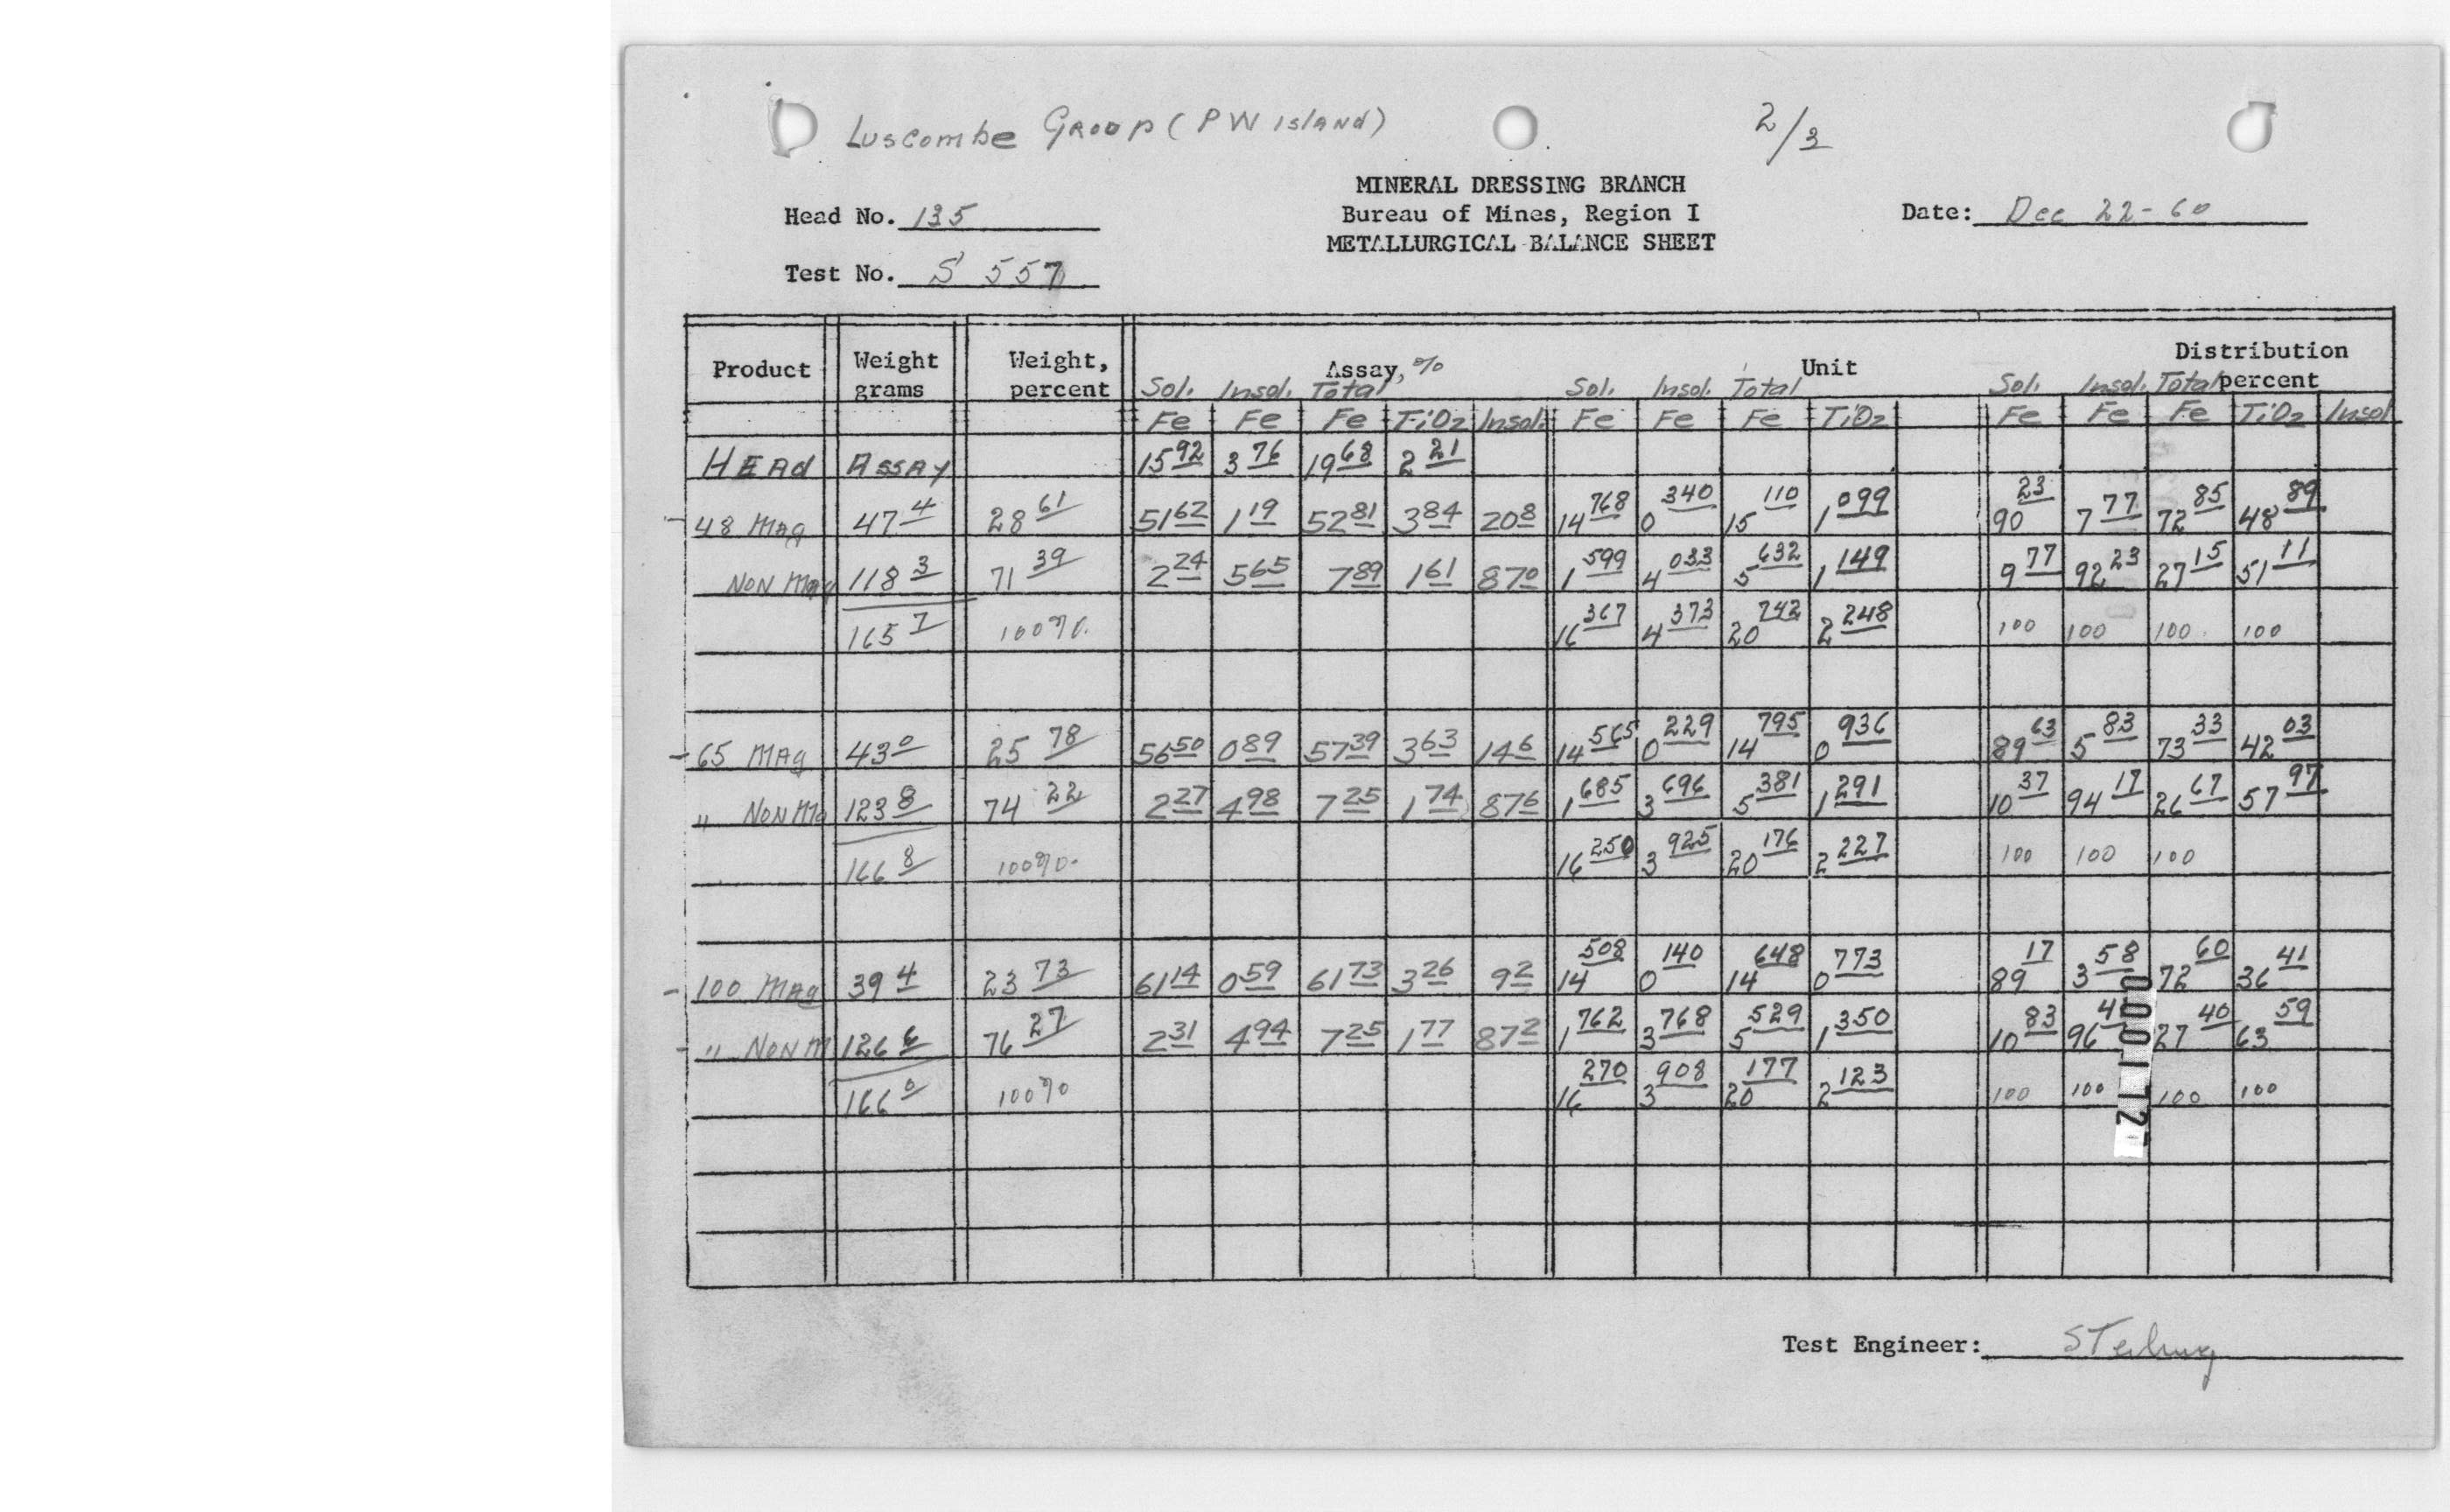 Luscombe Group (PW Island) 2/3
MINERAL DRESSING BRANCH
Head No. 135 Bureau of Mines, Region I Date: Dec 22-60
METALLURGICAL BALANCE SHEET
Test No. S 557
Product Weight grams Weight, percent Assay, % Unit Distribution percent
Sol. Insol. Total Sol. Insol. Total Sol. Insol. Total
Fe Fe Fe TiO2 Insol. Fe Fe Fe TiO2 Fe Fe Fe TiO2 Insol
HEAD ASSAY 15 92 3 76 19 68 2 21
-48 Mag 47 4 28 61 51 62 1 19 52 81 3 84 20 8 14 768 0 340 15 110 1 099 90 23 7 77 72 85 48 89
Non Mag 118 3 71 39 2 24 5 65 7 89 1 61 87 0 1 599 4 033 5 632 1 149 9 77 92 23 27 15 51 11
165 7 100% 16 367 4 373 20 742 2 248 100 100 100 100
-65 Mag 43 0 25 78 56 50 0 89 57 39 3 63 14 6 14 565 0 229 14 795 0 936 89 63 5 83 73 33 42 03
" Non Ma 123 8 74 22 2 27 4 98 7 25 1 74 87 6 1 685 3 696 5 381 1 291 10 37 94 17 26 67 57 97
166 8 100% 16 250 3 925 20 176 2 227 100 100 100
-100 Mag 39 4 23 73 61 14 0 59 61 73 3 26 9 2 14 508 0 140 14 648 0 773 89 17 3 58 72 60 36 41
-" Non M 126 6 76 27 2 31 4 94 7 25 1 77 87 2 1 762 3 768 5 529 1 350 10 83 96 4 27 40 63 59
166 0 100% 16 270 3 908 20 177 2 123 100 100 100 100
000172
Test Engineer: Sterling